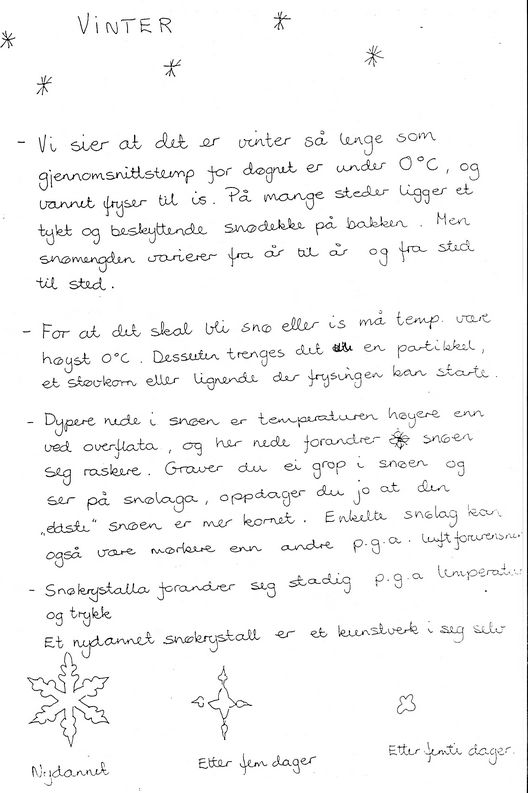 VINTER
- Vi sier at det er vinter så lenge som
gjennomsnittstemp for døgnet er under 0°C, og
vannet fryser til is. På mange steder ligger et
tykt og beskyttende snødekke på bakken. Men
snømengden varierer fra år til år og fra sted
til sted.
- For at det skal bli snø eller is må temp. være
høyst 0°C. Dessuten trenges det en partikkel,
et støvkorn eller lignende der frysingen kan starte.
- Dypere nede i snøen er temperaturen høyere enn
ved overflata, og her nede forandrer snøen
seg raskere. Graver du ei grop i snøen og
ser på snølaga, oppdager du jo at den
„eldste" snøen er mer kornet. Enkelte snølag kan
også være mørkere enn andre p.g.a. luftforurensning
- Snøkrystalla forandrer seg stadig p.g.a temperatur
og trykk
Et nydannet snøkrystall er et kunstverk i seg selv
Nydannet
Etter fem dager
Etter femti dager.